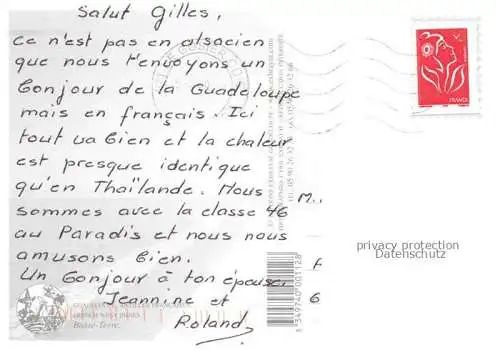 Salut Gilles,
Ce n'est pas en alsacien
que nous t'envoyons un
Bonjour de la Guadeloupe
mais en français. Ici
tout va bien et la chaleur
est presque identique
qu'en Thaïlande. Nous
sommes avec la classe 46
au Paradis et nous nous
amusons bien.
Un Bonjour à ton épouse.
Jeannine et
Roland
M..
FRANCE
privacy protection
Datenschutz
Basse-Terre.
3 349740 001128